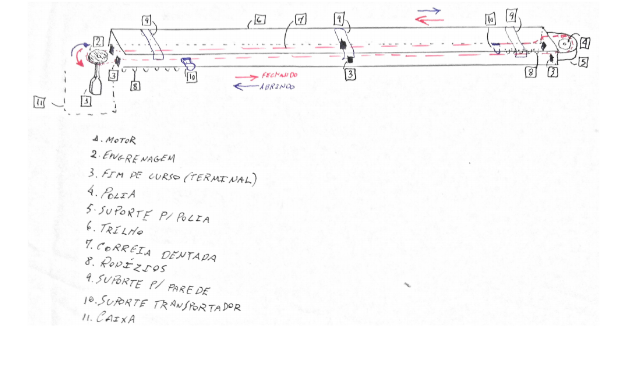 9
6
7
9
10
9
2
4
5
3
8
10
3
8
3
11
1
FECHANDO
ABRINDO
1. MOTOR
2. ENGRENAGEM
3. FIM DE CURSO (TERMINAL)
4. POLIA
5. SUPORTE P/ POLIA
6. TRILHO
7. CORREIA DENTADA
8. RODÍZIOS
9. SUPORTE P/ PAREDE
10. SUPORTE TRANSPORTADOR
11. CAIXA